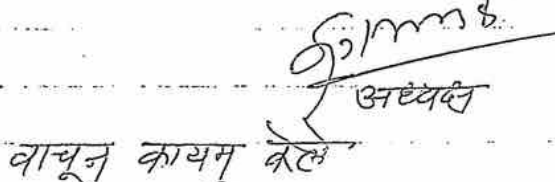 अध्यक्ष
वाचून कायम केले